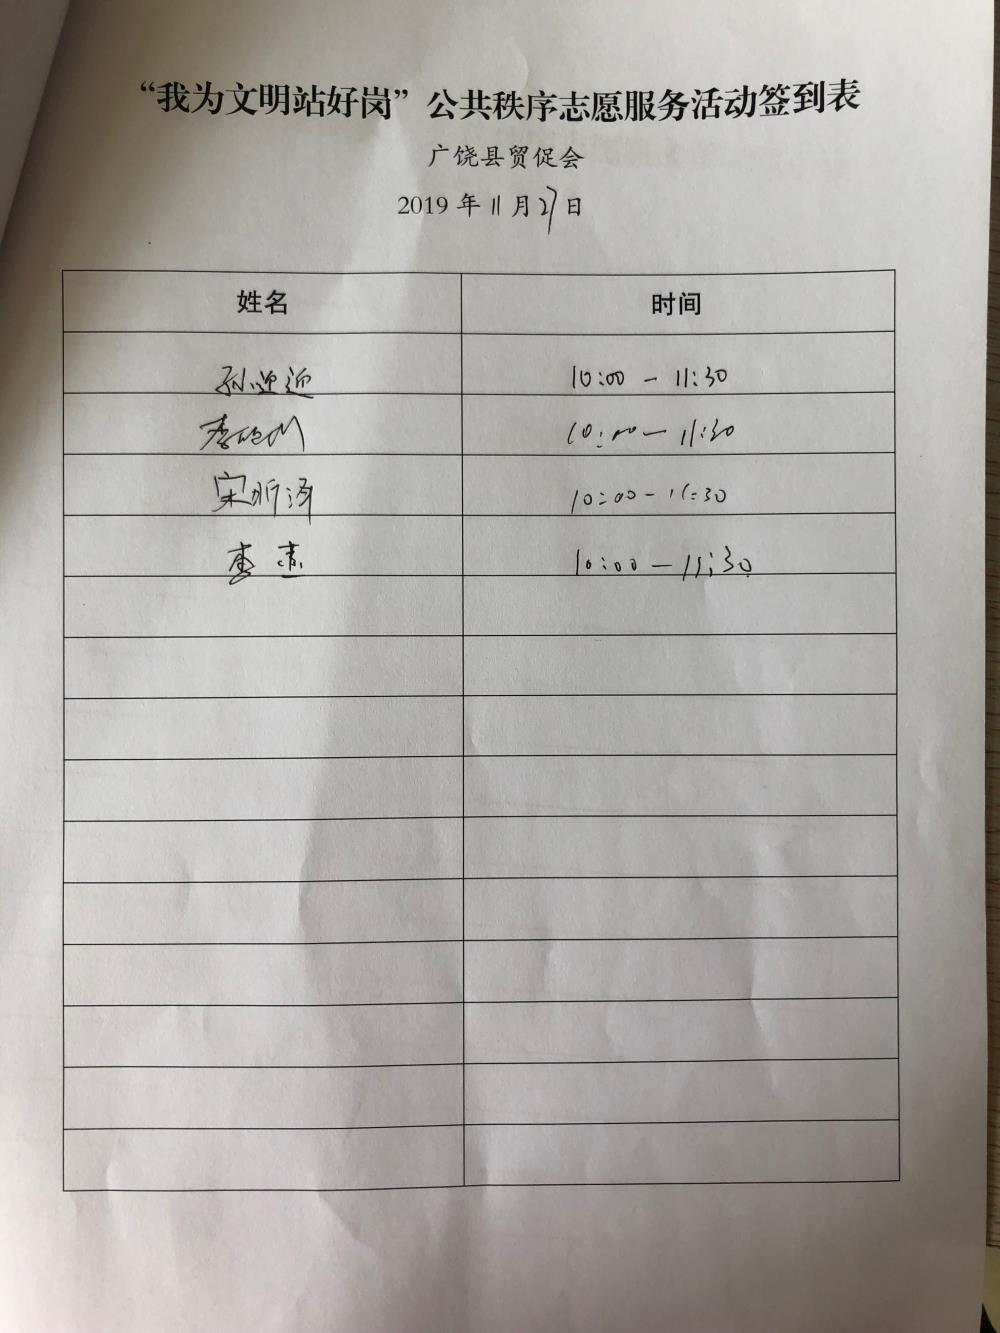 “我为文明站好岗”公共秩序志愿服务活动签到表
广饶县贸促会
2019 年 11 月 27 日
姓名 时间
孙迎迎 10:00 - 11:30
李 10:00 - 11:30
宋昕泽 10:00 - 11:30
李 10:00 - 11:30